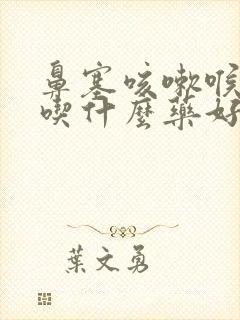 鼻塞咳嗽喉
喫什麼藥好
葉文勇